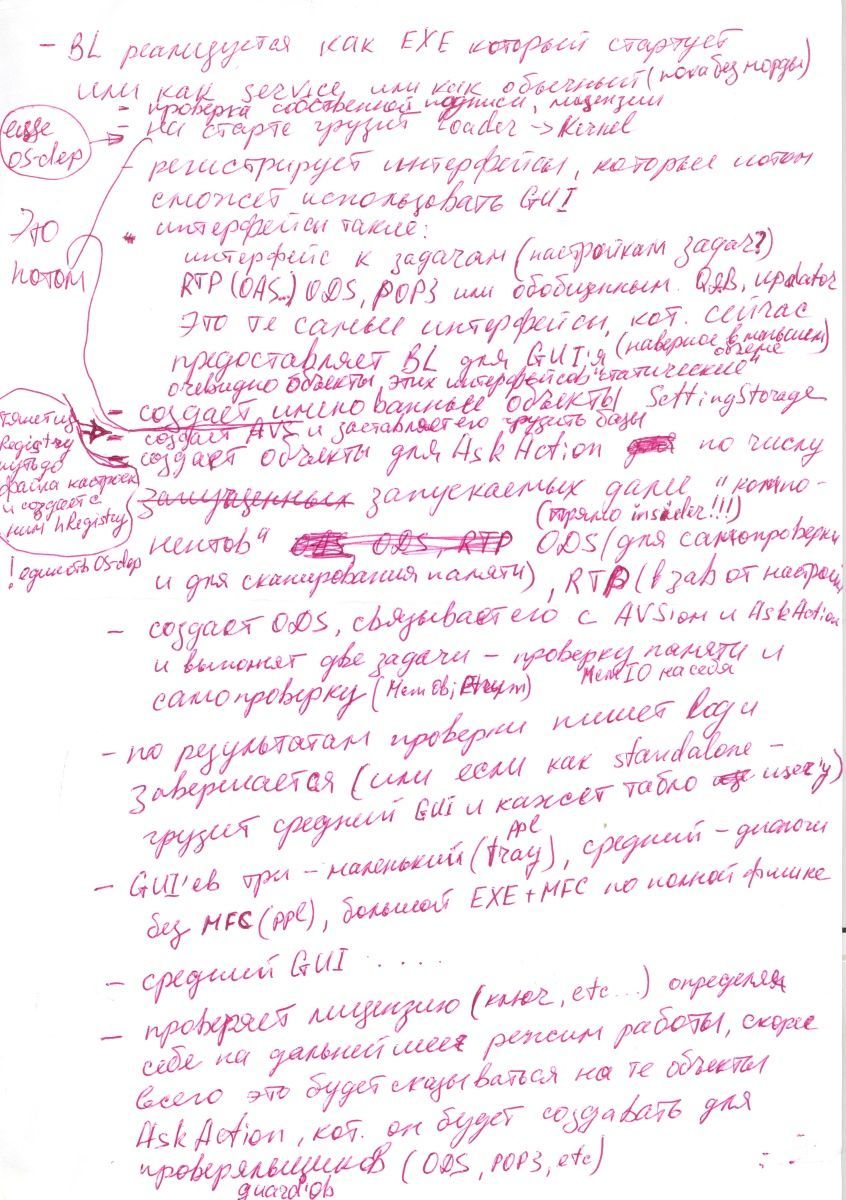 - BL реализуется как EXE который стартует
или как service или как обычный (пока без морды)
- проверка собственной подписи, лицензии
- на старте грузит Loader -> Kernel
еще
OS-dep
- регистрирует интерфейсы, которые потом
сможет использовать GUI
Это
потом
интерфейсы такие:
интерфейс к задачам (настройкам задач?)
RTP (OAS...) ODS, POP3 или обобщенным. QAB, updator
Это те самые интерфейсы, кот. сейчас
предоставляет BL для GUI'я (наверное в меньшем
объеме)
очевидно объекты, этих интерфейсов "статические"
- создает именованные объекты SettingStorage
- создает AVS и заставляет его грузить базы
- создает объекты для AskAction по числу
тянет из
Registry
путь до
файла настроек
и создает с
ним hRegistry
! единств OS-dep
запущенных запускаемых далее "компо-
(прямо inside!!!)
нентов" ODS, RTP ODS (для самопроверки
и для сканирования памяти), RTP (в зав от настроек
- создает ODS, связывает его с AVSом и AskAction
и выполняет две задачи - проверку памяти и
MemIO на себя
самопроверку (MemObj
- по результатам проверки пишет код и
завершается (или если как standalone -
грузит средний GUI и кажет табло user'у)
- GUI'ев три - маленький (tray), средний - диалоги
ppl
без MFC (ppl), большой EXE + MFC по полной
- средний GUI . . . .
- проверяет лицензию (ключ, etc...) определяя
себе на дальнейшее режим работы, скорее
всего это будет сказываться на те объекты
AskAction, кот. он будет создавать для
проверяльщиков (ODS, POP3, etc)
guard'ов